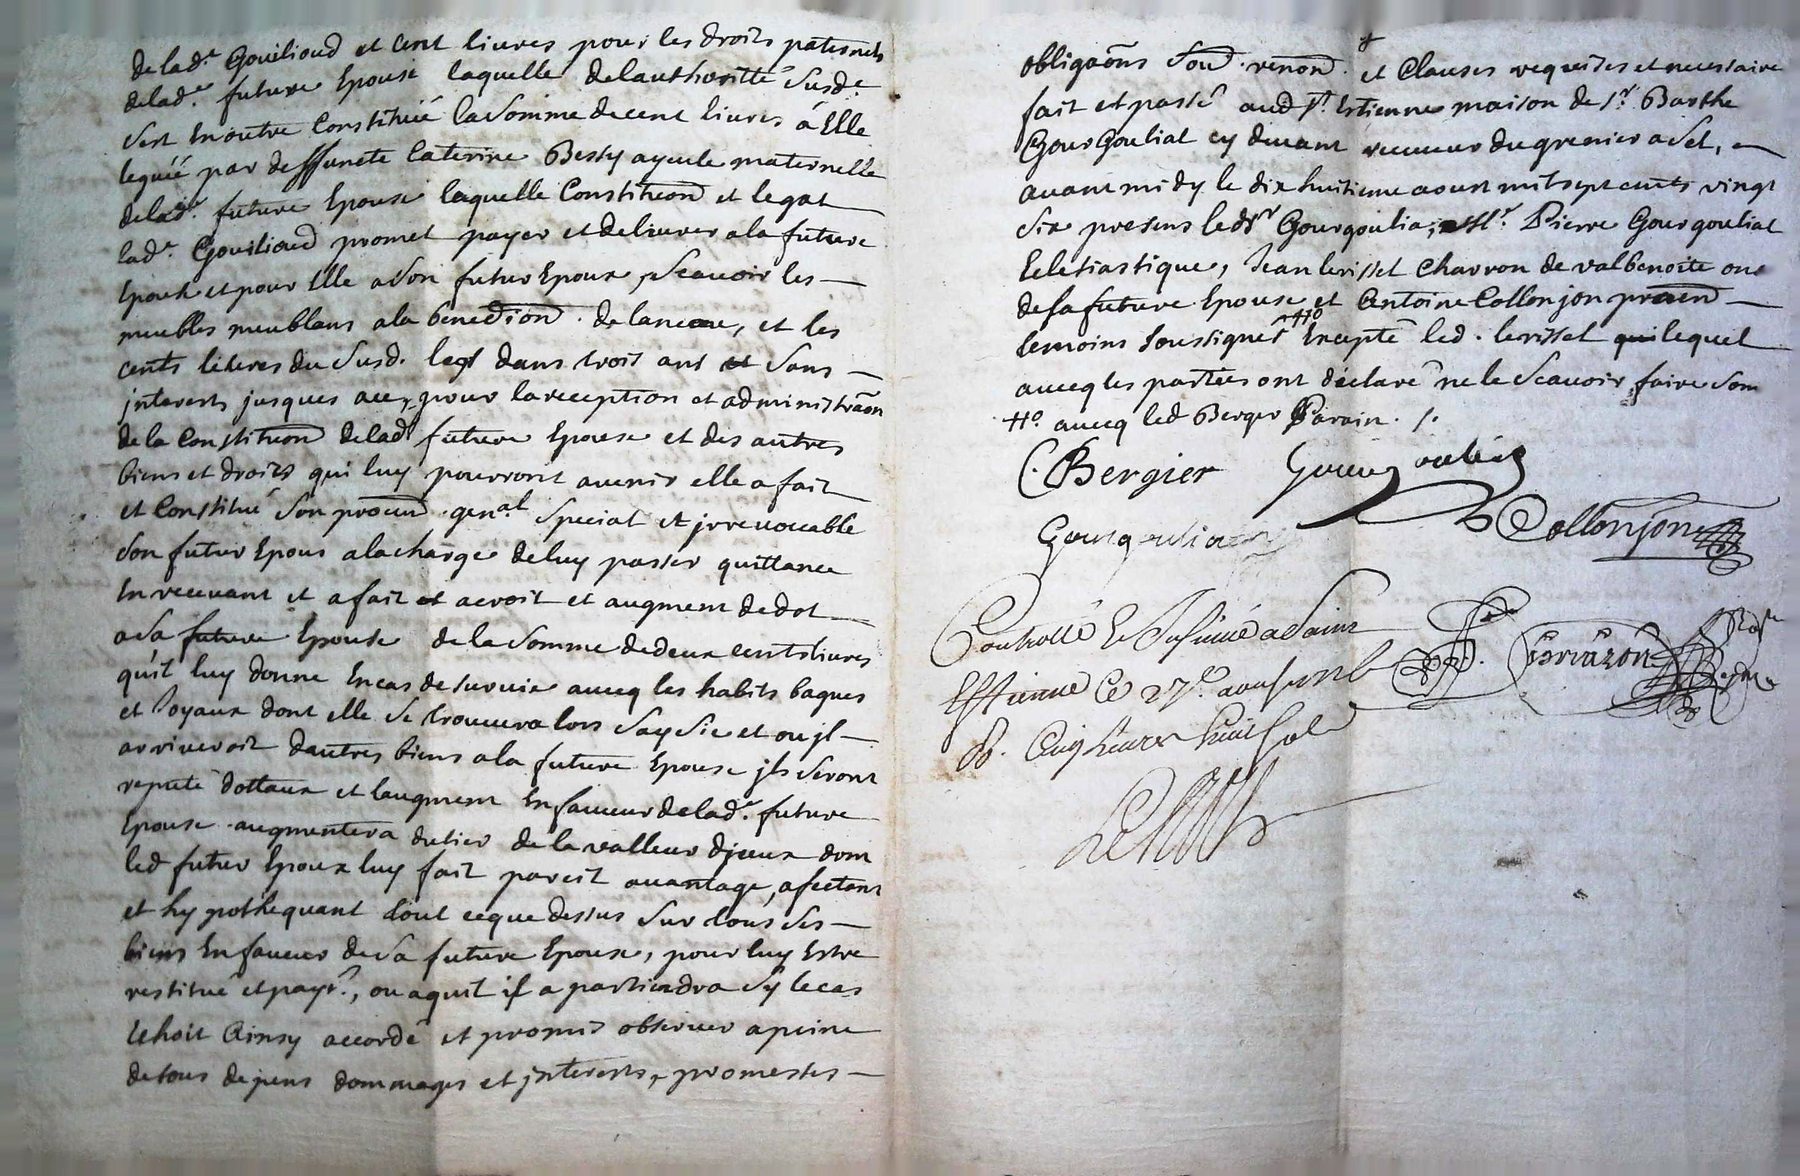 de lad.e Gouilioud et cent livres pour les droits paternels
de lad.e future Epouse laquelle de lauthoritté susd.e
sest en outre Constituée la somme de cent livres á Elle
leguéé par deffuncte Caterine Bessy ayeule maternelle
de lad.e future Epouse laquelle Constitution et legat
lad.e Gouilioud promet payer et delivrer a la future
Epouse et pour Elle a son futur Epoux, scauoir les
meubles meublans a la benediôn . de lance, et les
cents livres du susd. legt dans troit ans et sans
jnterests jusques a pour la reception et administrâon
de la Constituôn de lad.e future Epouse et des autres
biens et droits qui luy pourront auenir elle a fait
et Constitué son procur gen.al special et jrreuocable
son futur Epous a la charge de luy passer quittance
En receuant et a fait et acroit et augment de dot
a sa future Epouse de la somme de deux cents livres
qu'il luy donne En cas de suruie auecq les habits bagues
et Joyaux dont elle se trouuera lors saysie et ou jl
arriueroit dautres biens a la future Epouse jls seront
reputé dottaux et laugment En faueur de lad.e future
Epouse augmentera du tier de la valleur djceux dont
led futur Epoux luy fait pareil auantage, afectant
et hypothequant tout ce que dessus sur tous ses
biens En faueur de sa future Epouse, pour luy Estre
restitué et payé, ou a quil if apartiendra sy le cas
Echoit Ainsy accordé et promis obseruer a peine
de tous depens dommages et jnterests, promesses
obligaôns soum . renon . et Clauses requises et necessaire
fait et passé aud St. Estienne maison de s.r Barthe
Gourgouliat cy deuant receueur du grenier a sel,
auant midy le dix huitieme aoust mil sept cents vingt
six presens led sr Gourgoulia, Pierre Gourgouliat
Eclesiastique, Jean lerissel charron de valbenoite
de la future Epouse et Antoine Collonjon praen
temoins soussignés #o Excepté led . lerissel qui lequel
auecq les parties ont déclaré ne le scauoir faire som
#o auecq led Berger Parain . /.
C. Bergier
Collonjon
Controllé Et Insinué a Saint
Estienne Ce 27e. aoust
R. Cinq Liures huit sols